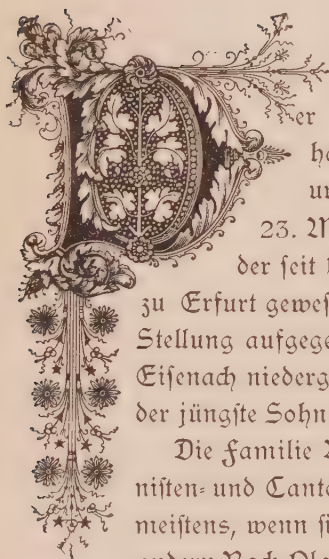 Der
ha
un
23. M
der ſeit 1
zu Erfurt geweſ
Stellung aufgege
Eiſenach niederg
der jüngſte Sohn
Die Familie
niſten- und Canto
meiſtens, wenn ſi